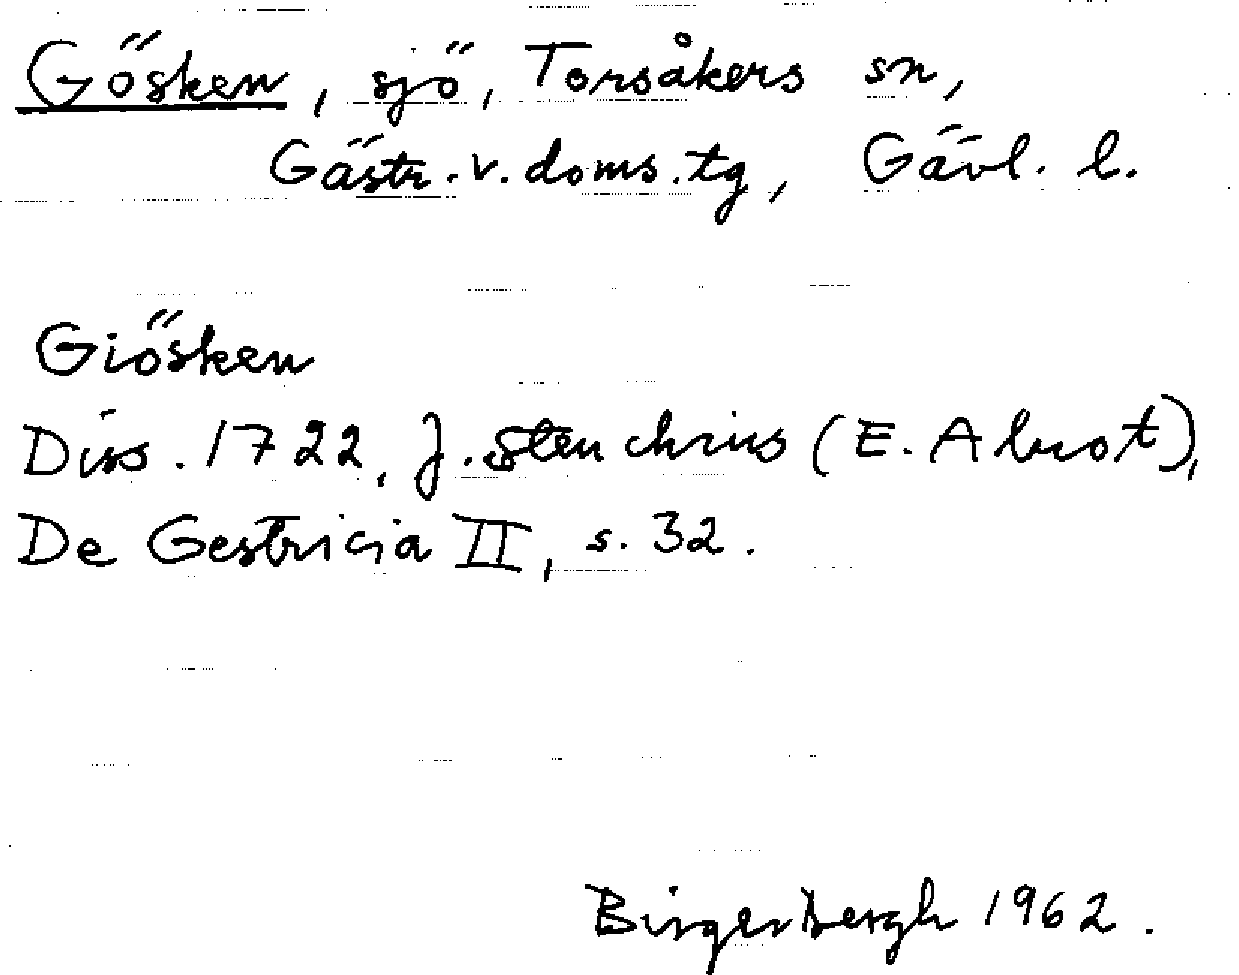 Gösken, sjö, Torsåkers sn,
Gästr. v. doms. tg, Gävl. l.
Giösken
Diss. 1722, J. Stenchrius (E. Alrot),
De Gestricia II, s. 32.
Birger Bergh 1962.